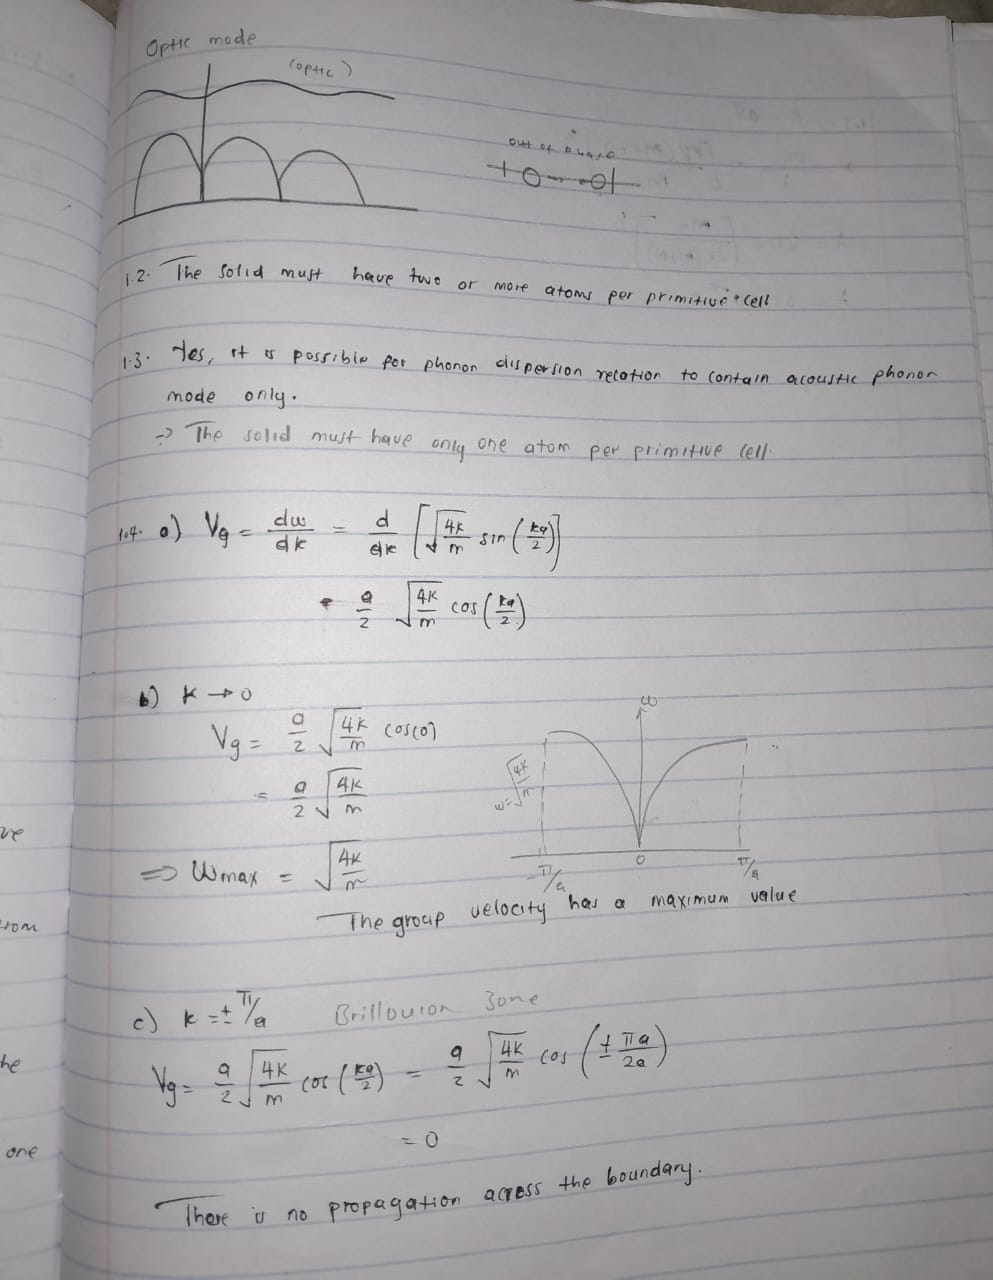 Optic mode
(optic)
out of phase
1.2. The solid must have two or more atoms per primitive cell
1.3. Yes, it is possible for phonon dispersion relation to contain acoustic phonon
mode only.
=> The solid must have only one atom per primitive cell.
1.4. a) Vg = dω/dk = d/dk [√(4K/m) sin(ka/2)]
= a/2 √(4K/m) cos(ka/2)
b) k → 0
Vg = a/2 √(4K/m) cos(0)
= a/2 √(4K/m)
=> Wmax = √(4K/m)
ω
w = √(4K/m)
-π/a 0 π/a
The group velocity has a maximum value
c) k = ± π/a Brillouion Zone
Vg = a/2 √(4K/m) cos(ka/2) = a/2 √(4K/m) cos(± πa/2a)
= 0
There is no propagation across the boundary.
one